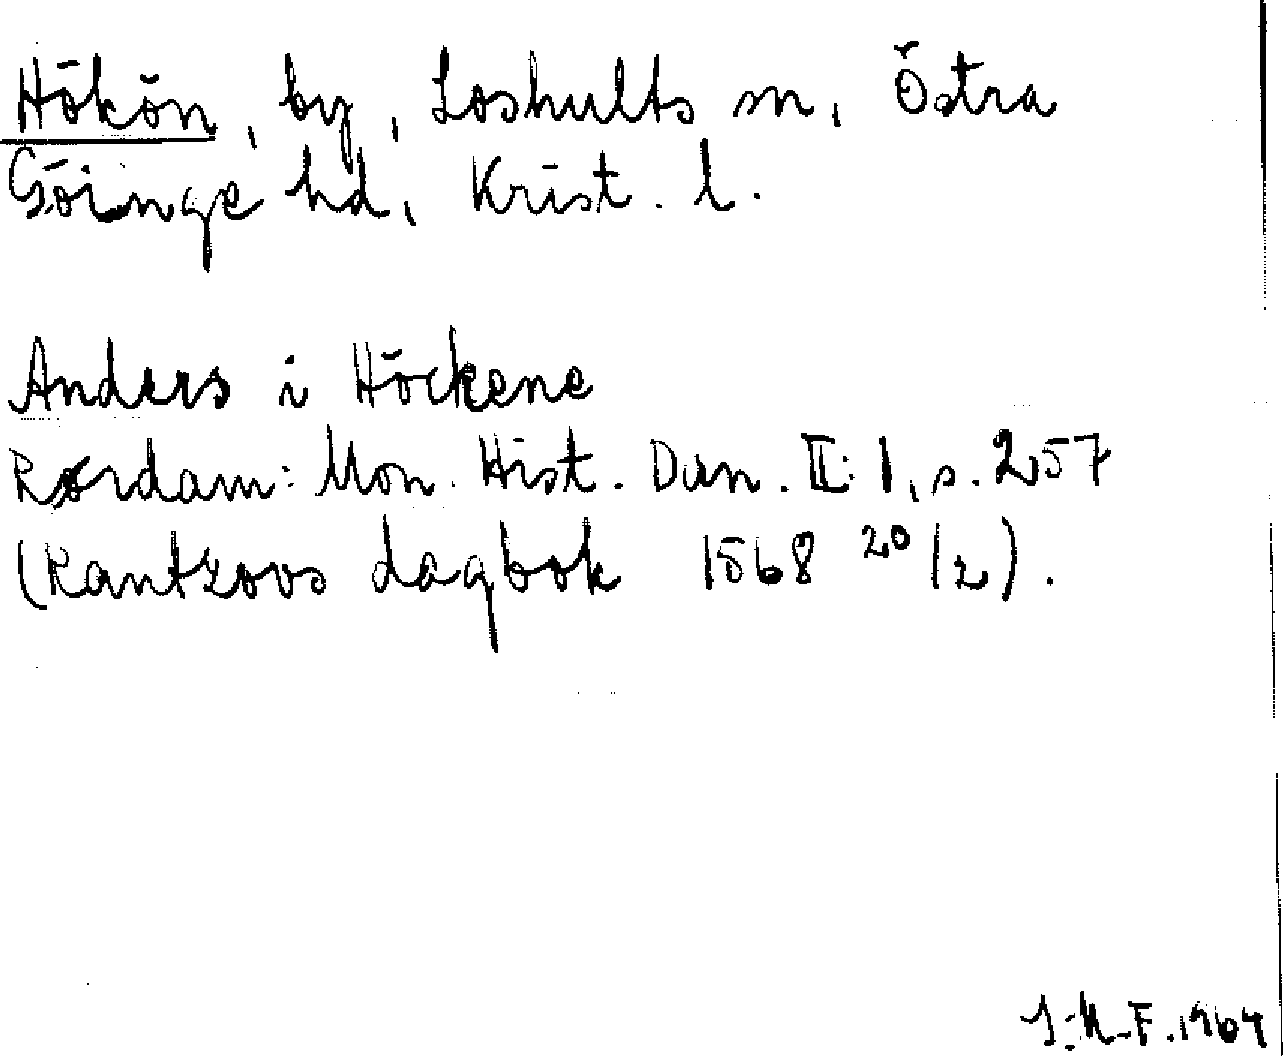 Hökön, by, Loshults sn, Östra
Göinge hd, Krist. l.
Anders i Höckene
Rørdam: Mon. Hist. Dan. II:1, s. 257
(Rantzovs dagbok 1568 20/2).